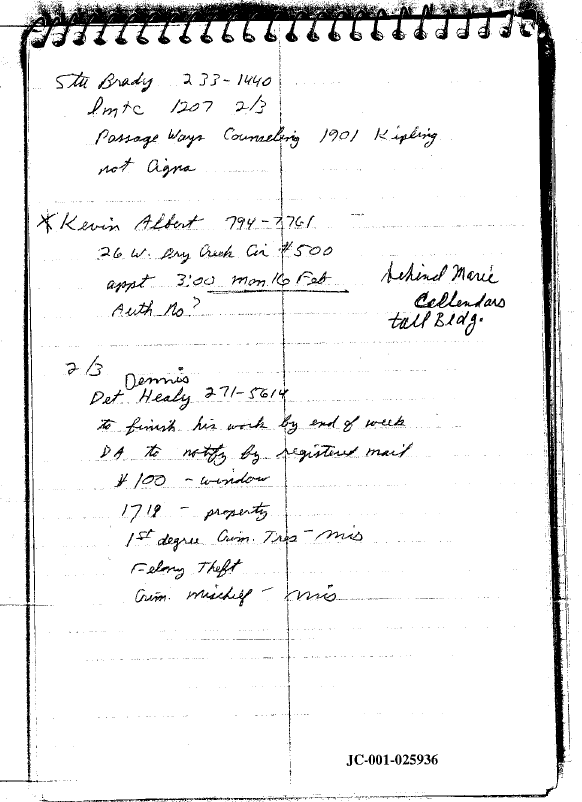 Stu Brady 233-1440
lmtc 1207 2/3
Passage Ways Counseling 1901 Kipling
not Cigna
* Kevin Albert 794-7761
26 W. Dry Creek Cir #500
appt 3:00 mon 16 Feb
Auth No?
behind Marie
Callendars
tall Bldg.
2/3
Dennis
Det Healy 271-5614
to finish his work by end of week
DA to notify by registered mail
$100 - window
1719 - property
1st degree Crim. Tres - mis
Felony Theft
Crim. mischief - mis
JC-001-025936